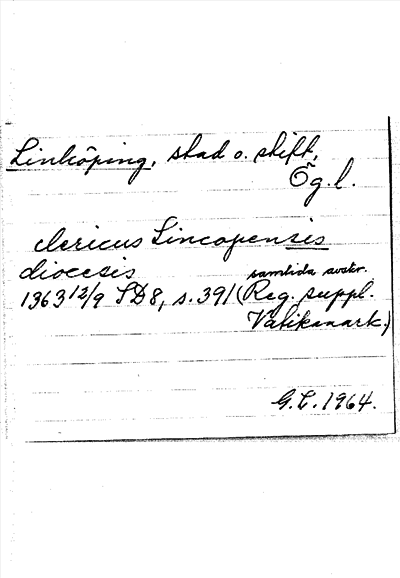 Linköping, stad o. stift,
Ög.l.
clericus Lincopensis
diocesis
samtida avskr.
1363 12/9 SD8, s. 391 (Reg. suppl.
Vatikanark.)
G.L. 1964.